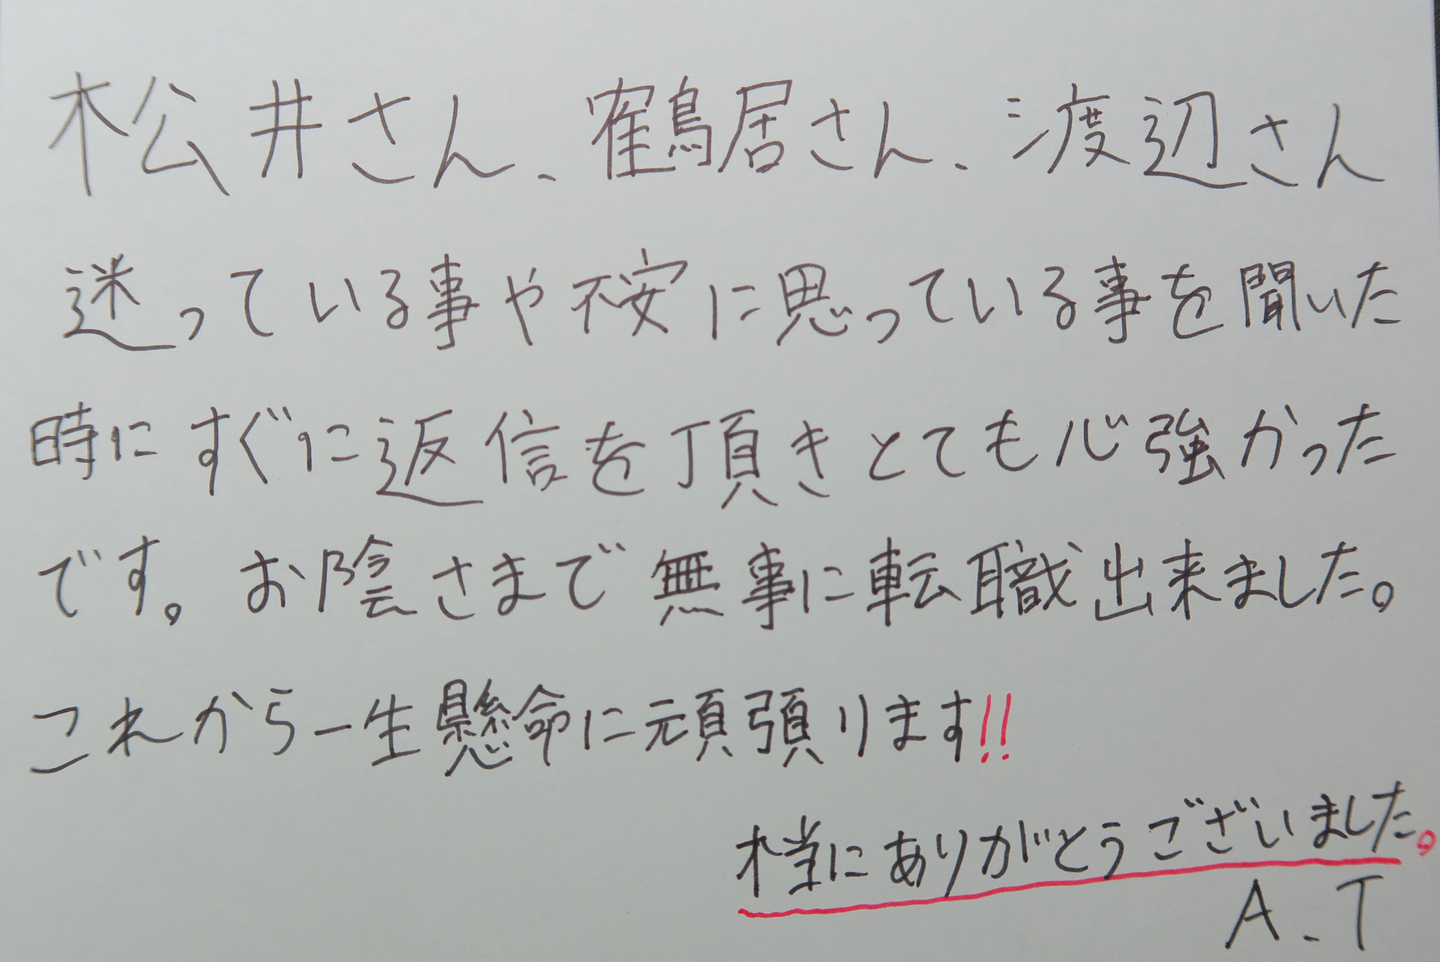 松井さん、鶴居さん、渡辺さん
迷っている事や不安に思っている事を聞いた
時にすぐに返信を頂きとても心強かった
です。お陰さまで無事に転職出来ました。
これから一生懸命に頑張ります!!
本当にありがとうございました。
A.T